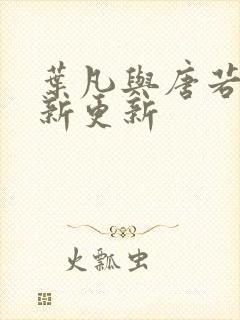 葉凡與唐若
新更新
火瓢虫